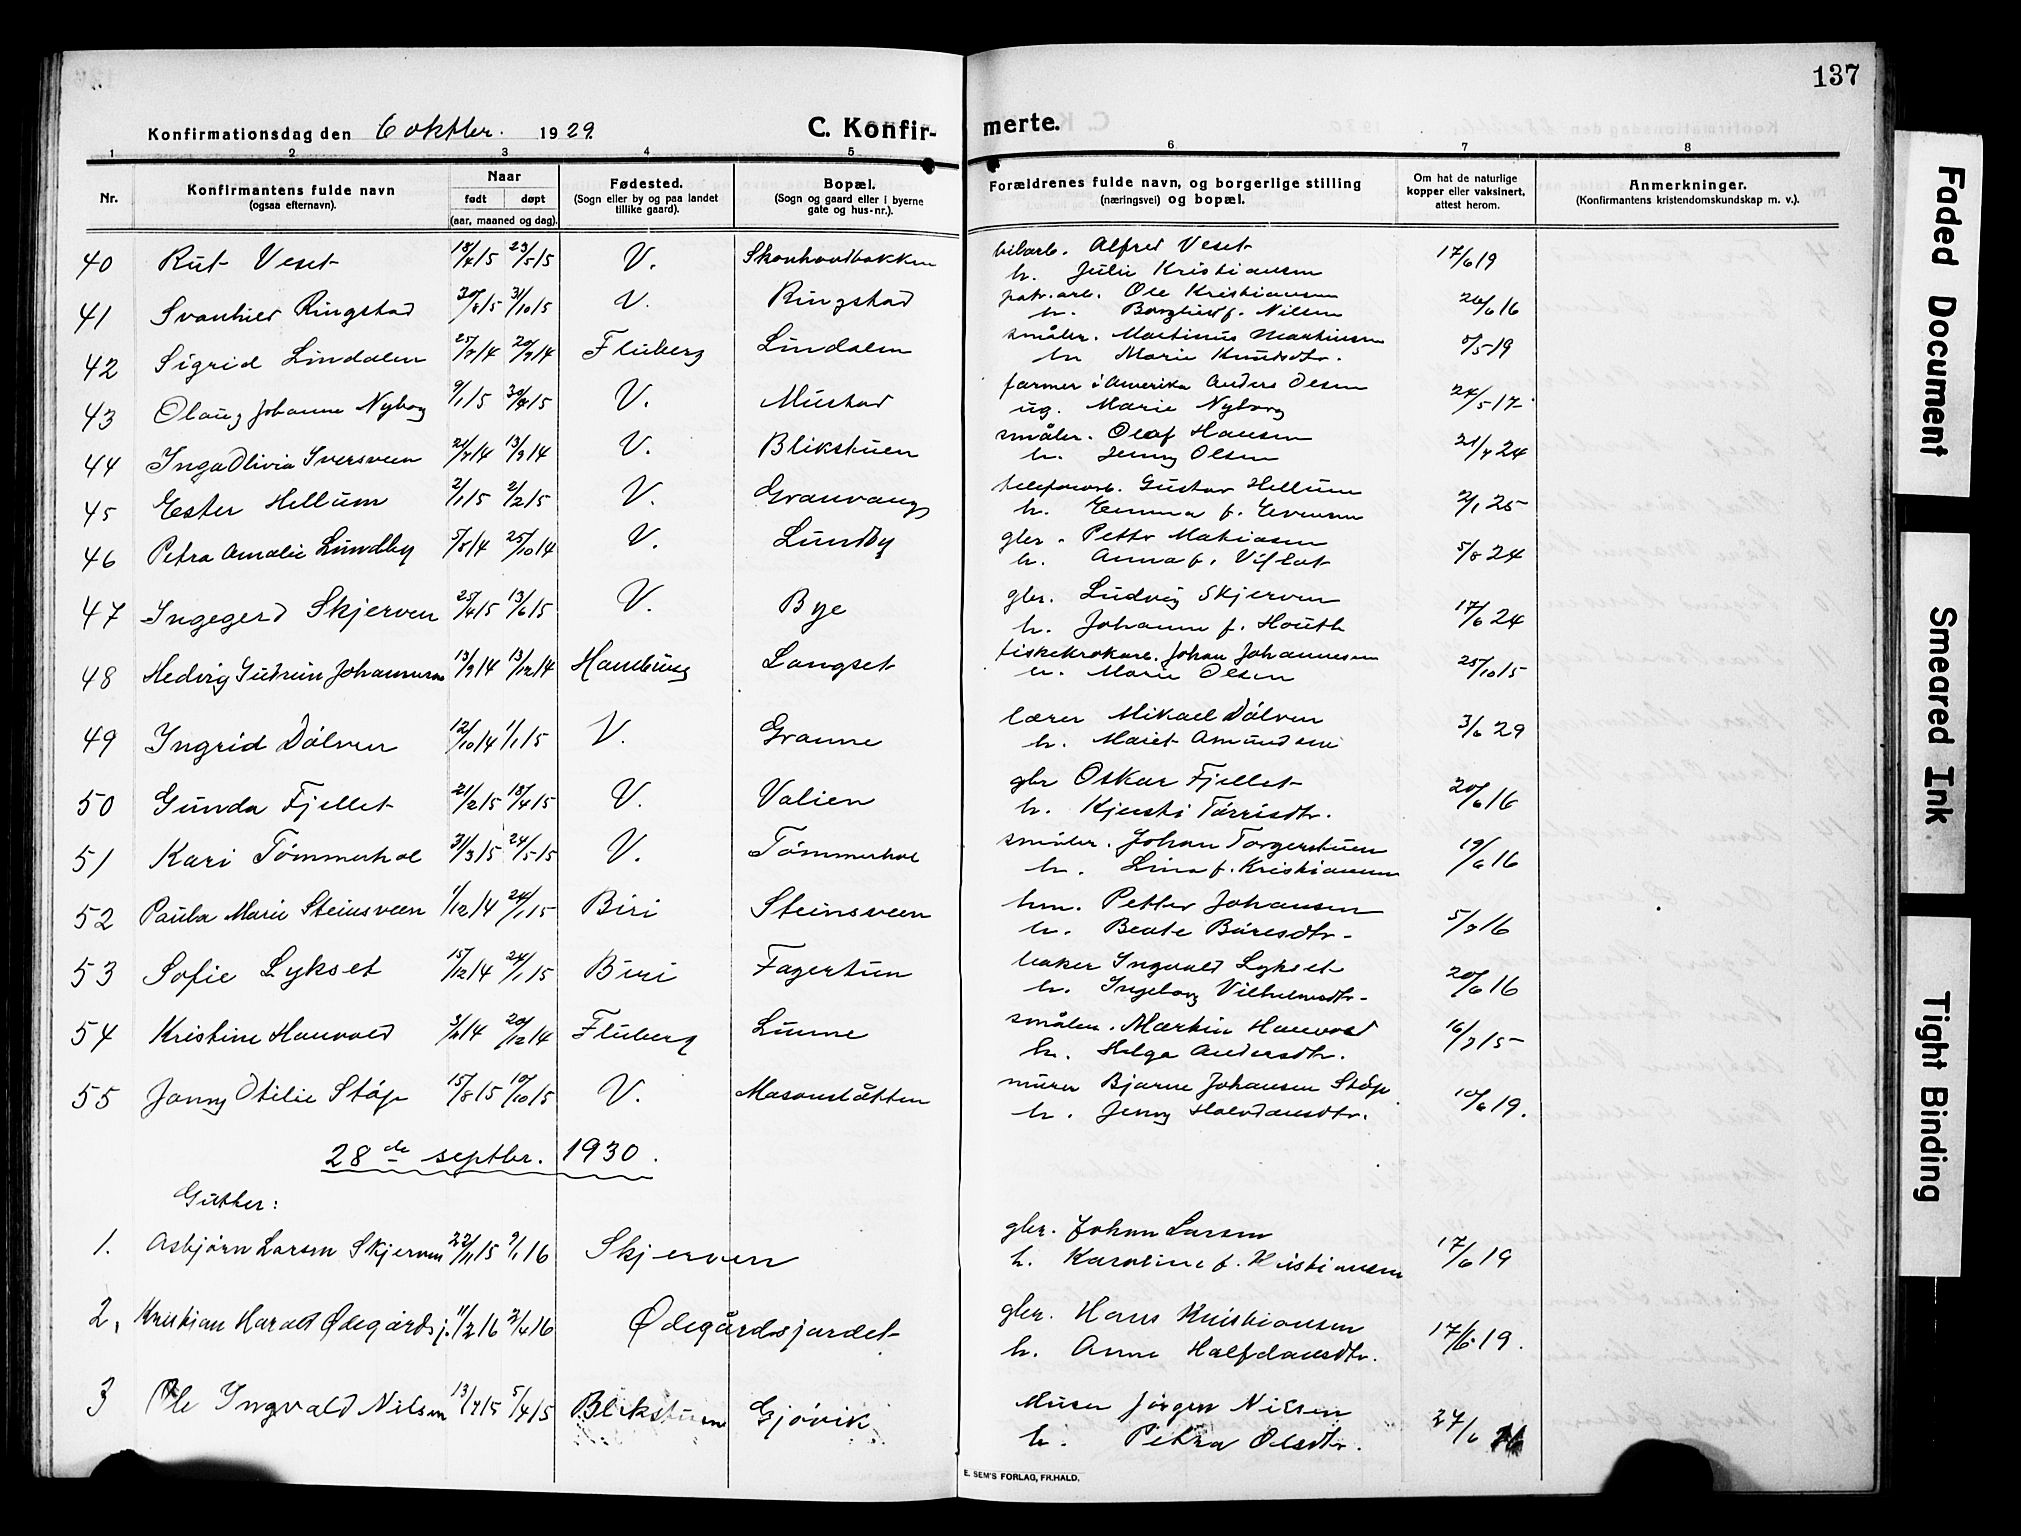 137
Konfirmationsdag den 6 oktbr. 1929.
C. Konfir-
merte.
1 2 3 4 5 6 7 8
Nr.
Konfirmantens fulde navn
(ogsaa efternavn).
Naar
født døpt
(aar, maaned og dag).
Fødested.
(Sogn eller by og paa landet
tillike gaard).
Bopæl.
(Sogn og gaard eller i byerne
gate og hus-nr.).
Forældrenes fulde navn, og borgerlige stilling
(næringsvei) og bopæl.
Om hat de naturlige
kopper eller vaksinert,
attest herom.
Anmerkninger.
(Konfirmantens kristendomskundskap m. v.).
40 Rut Veset 18/4 15 23/5 15 V. Skonhovdbakken bilarb. Alfred Veset 17/6 19
h. Julie Kristiansen
41 Svanhild Ringstad 30/8 15 31/10 15 V. Ringstad Ole Kristiansen 26/6 16
h. Borghild f. Nilsen
42 Sigrid Lindalen 25/7 14 20/9 14 Fluberg Lindalen småbr. Martinus Martinsen
h. Marie Knudsdtr.
43 Olaug Johanne Nyborg 9/1 15 V. Mustad farmer i Amerika Anders Olsen 24/5 17
ug. Marie Nyborg
44 Inga Olivia Iversveen 13/9 14 V. Blikstuen småbr. Olaf Hansen 24
h. Jenny Olsen
45 Ester Hellum 2/1 15 2/2 15 V. Granvang telefonarb. Gustav Hellum 2/1 25
h. Emma f. Evensen
46 Petra Amalie Lundby 5/8 14 25/10 14 V. Lundby gbr. Petter Matiasen 5/8 24
h. Anna f. Viflat
47 Ingegerd Skjerven 25/4 15 13/6 15 V. Bye gbr. Ludvig Skjerven 17/6 24
h. Johanne f. Houth
48 Hedvig Gudrun Johannesen 13/9 14 13/12 14 Hamburg Langset fiskekrokarb. Johan Johannesen 25/10 15
h. Marie Olsen
49 Ingrid Dölven 12/10 14 1/1 15 V. Granne lærer Mikael Dölven 3/6 29
h. Marit Amundsen
50 Gunda Fjellet 21/2 15 18/4 15 V. Valien gbr Oskar Fjellet 20/6 16
h. Kjersti Törrisdtr.
51 Kari Tömmerhol 31/3 15 24/5 15 V. Tömmerhol småbr. Johan Torgerstuen 19/6 16
h. Lina f. Kristiansen
52 Paula Marie Steinsveen 1/12 14 24/1 15 Biri Steinsveen hm. Petter Johansen 5/7 16
h. Beate Båresdtr.
53 Sofie Lykset 15/12 14 24/1 15 Biri Fagertun baker Ingvald Lykset 20/6 16
h. Ingeborg Vilhelmsdtr.
54 Kristine Hauvold 14 20/12 14 Fluberg Lunne småbr. Martin Hauvold 16/7 15
h. Helga Andersdtr.
55 Jenny Otilie Støp 15/8 15 10/10 15 V. Masonstätten murer Bjarne Johansen Støp 10/6 19.
h. Jenny Halvdansdtr.
28de septbr. 1930.
Gutter:
1. Asbjørn Larsen Skjerven 22/11 15 9/1 16 Skjerven gbr. Johan Larsen 17/6 19
h. Karoline f. Kristiansen
2. Kristian Harald Ødegårdsj. 11/2 16 2/4 16 Ødegårdsjordet gbr. Hans Kristiansen 17/6 19.
h. Anne Halfdansdtr.
3 Ole Ingvald Nilsen 5/4 15 Blikstuen Gjövik Murer Jörgen Nilsen 27/6
h. Petra Olsdtr.
E. SEM'S FORLAG, FR.HALD.
Faded Document
Smeared Ink
Tight Binding